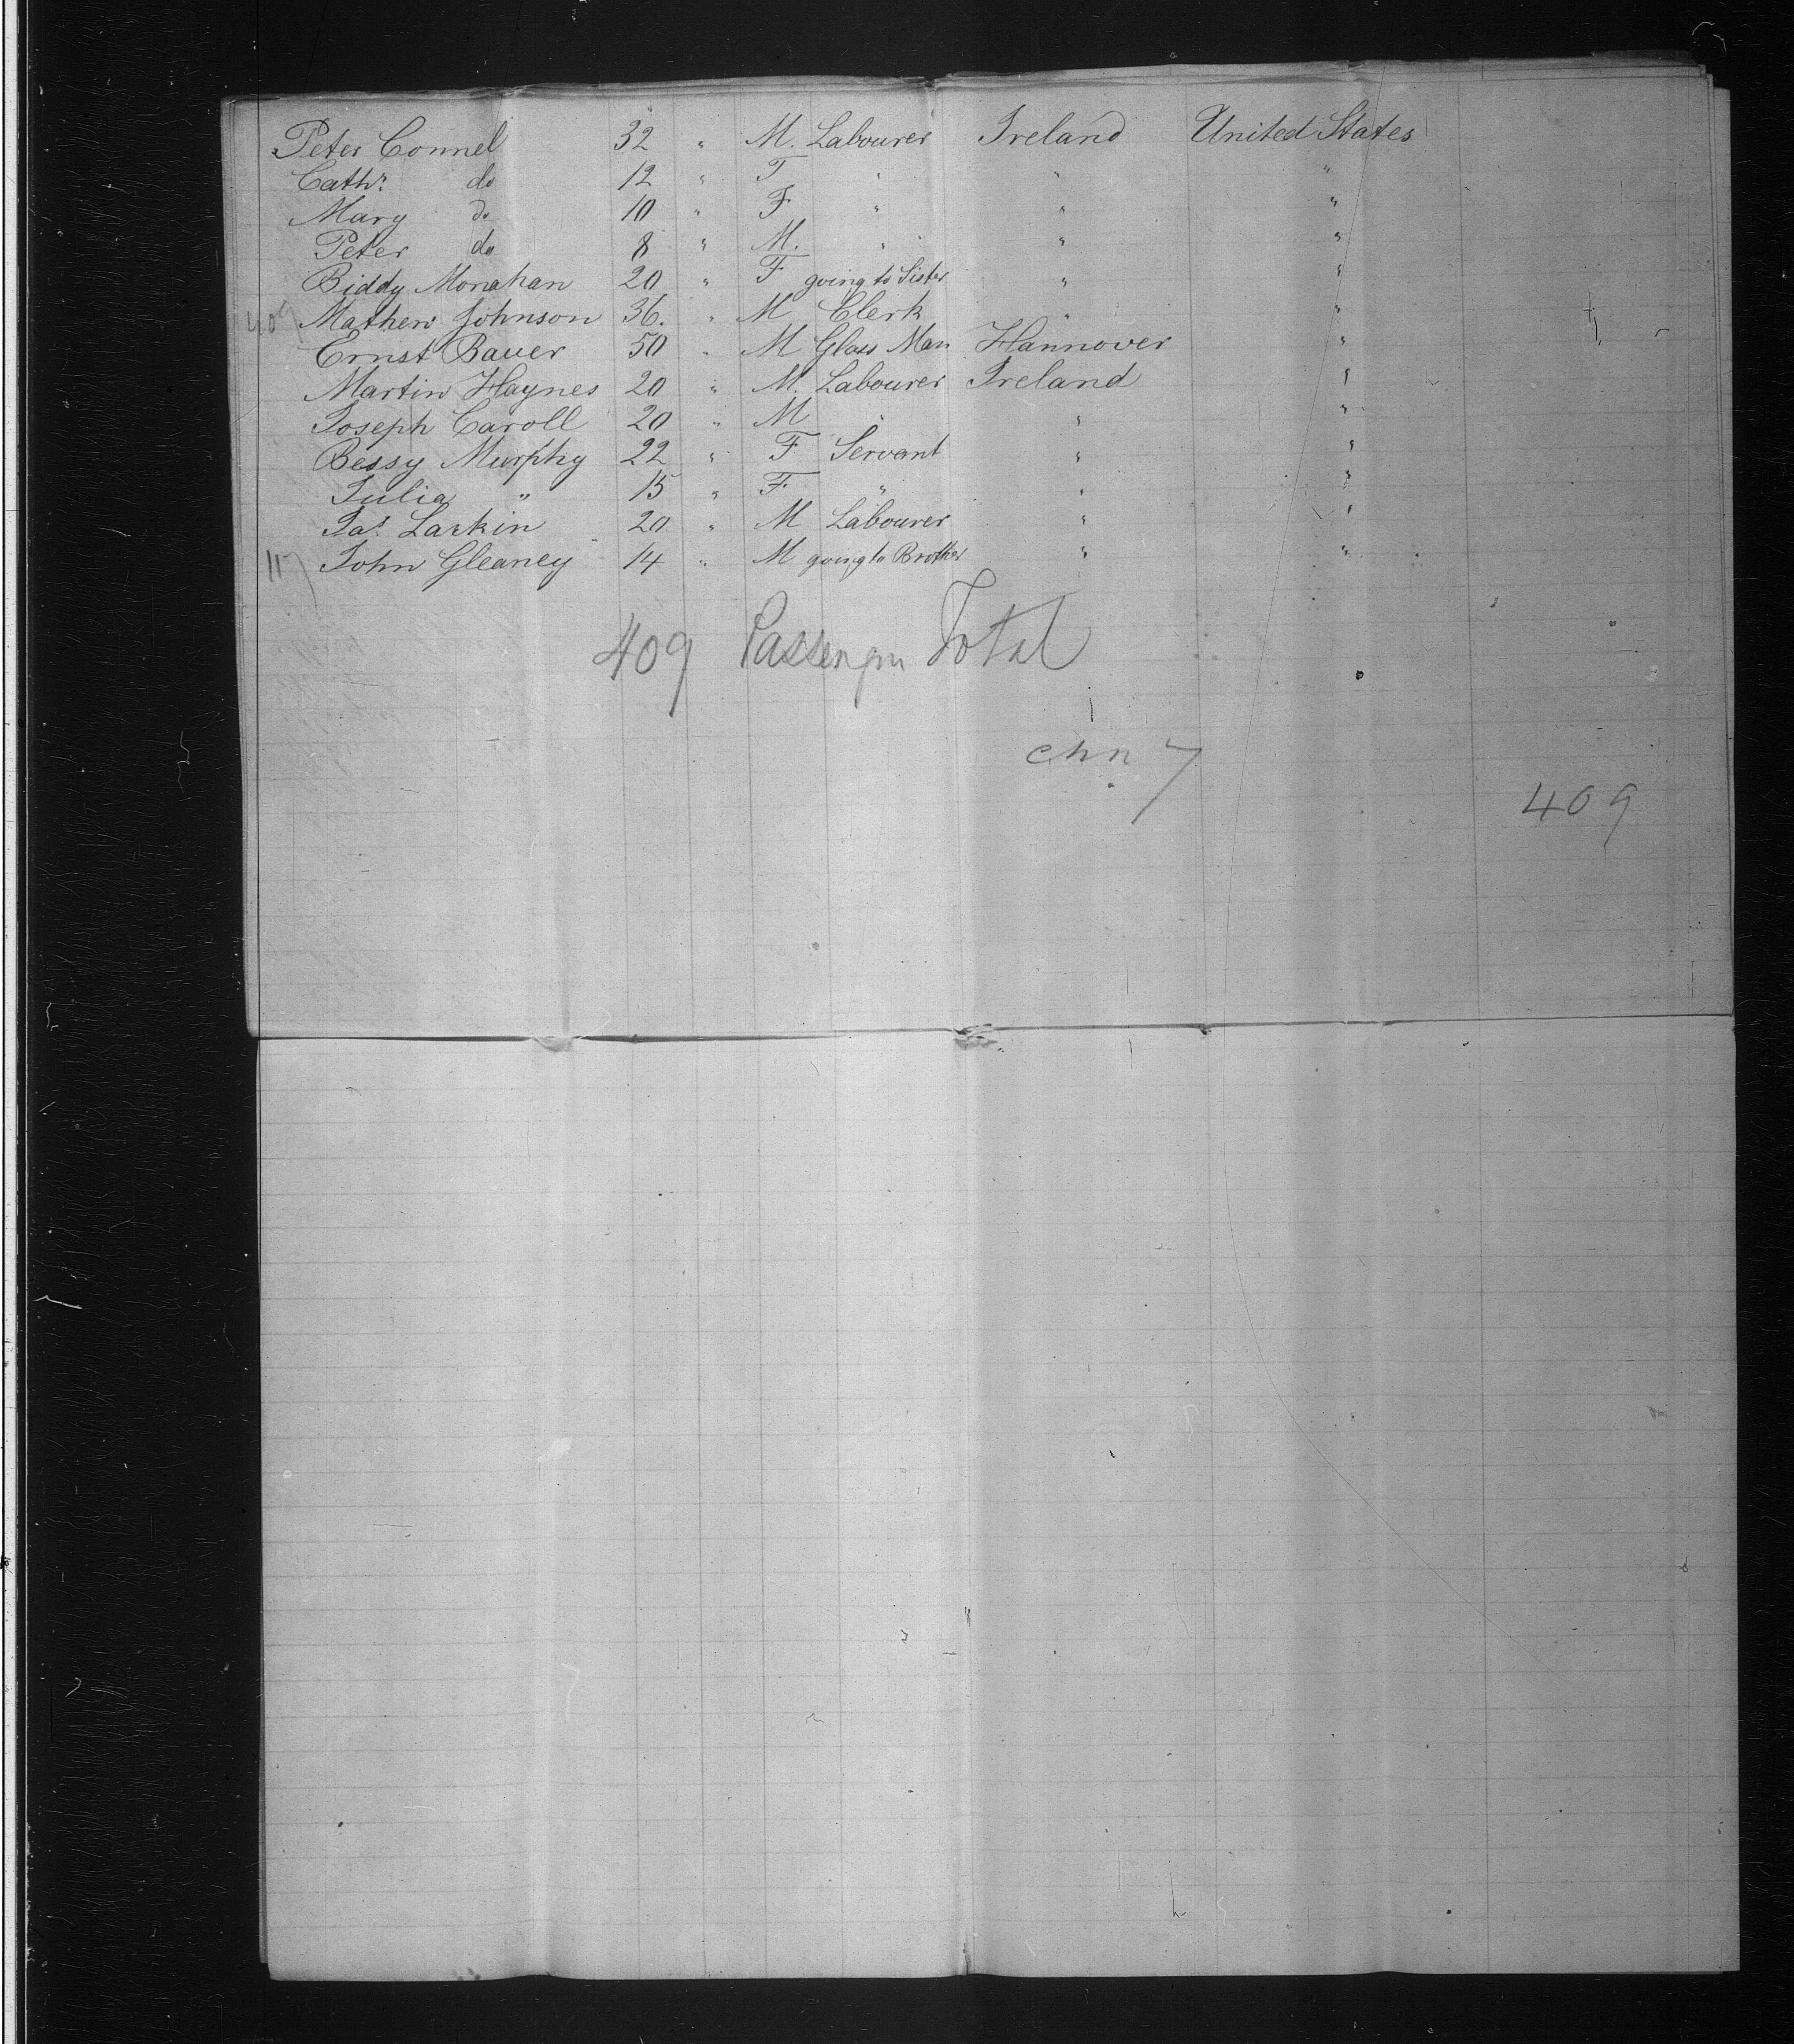 Peter Connel 32 " M. Labourer Ireland United States
Cathr. do 12 " F " " "
Mary do 10 " F " " "
Peter do 8 " M. " " "
Biddy Monahan 20 " F going to Sister " "
409 Mathew Johnson 36. " M Clerk " "
Ernst Bauer 50 " M Glass Man Hannover "
Martin Haynes 20 " M. Labourer Ireland "
Joseph Caroll 20 " M " " "
Bessy Murphy 22 " F Servant " "
Julia " 15 " F " " "
Jas. Larkin 20 " M Labourer " "
117 John Gleaney 14 " M going to Brother " "
409 Passenger Total
chn 7
409